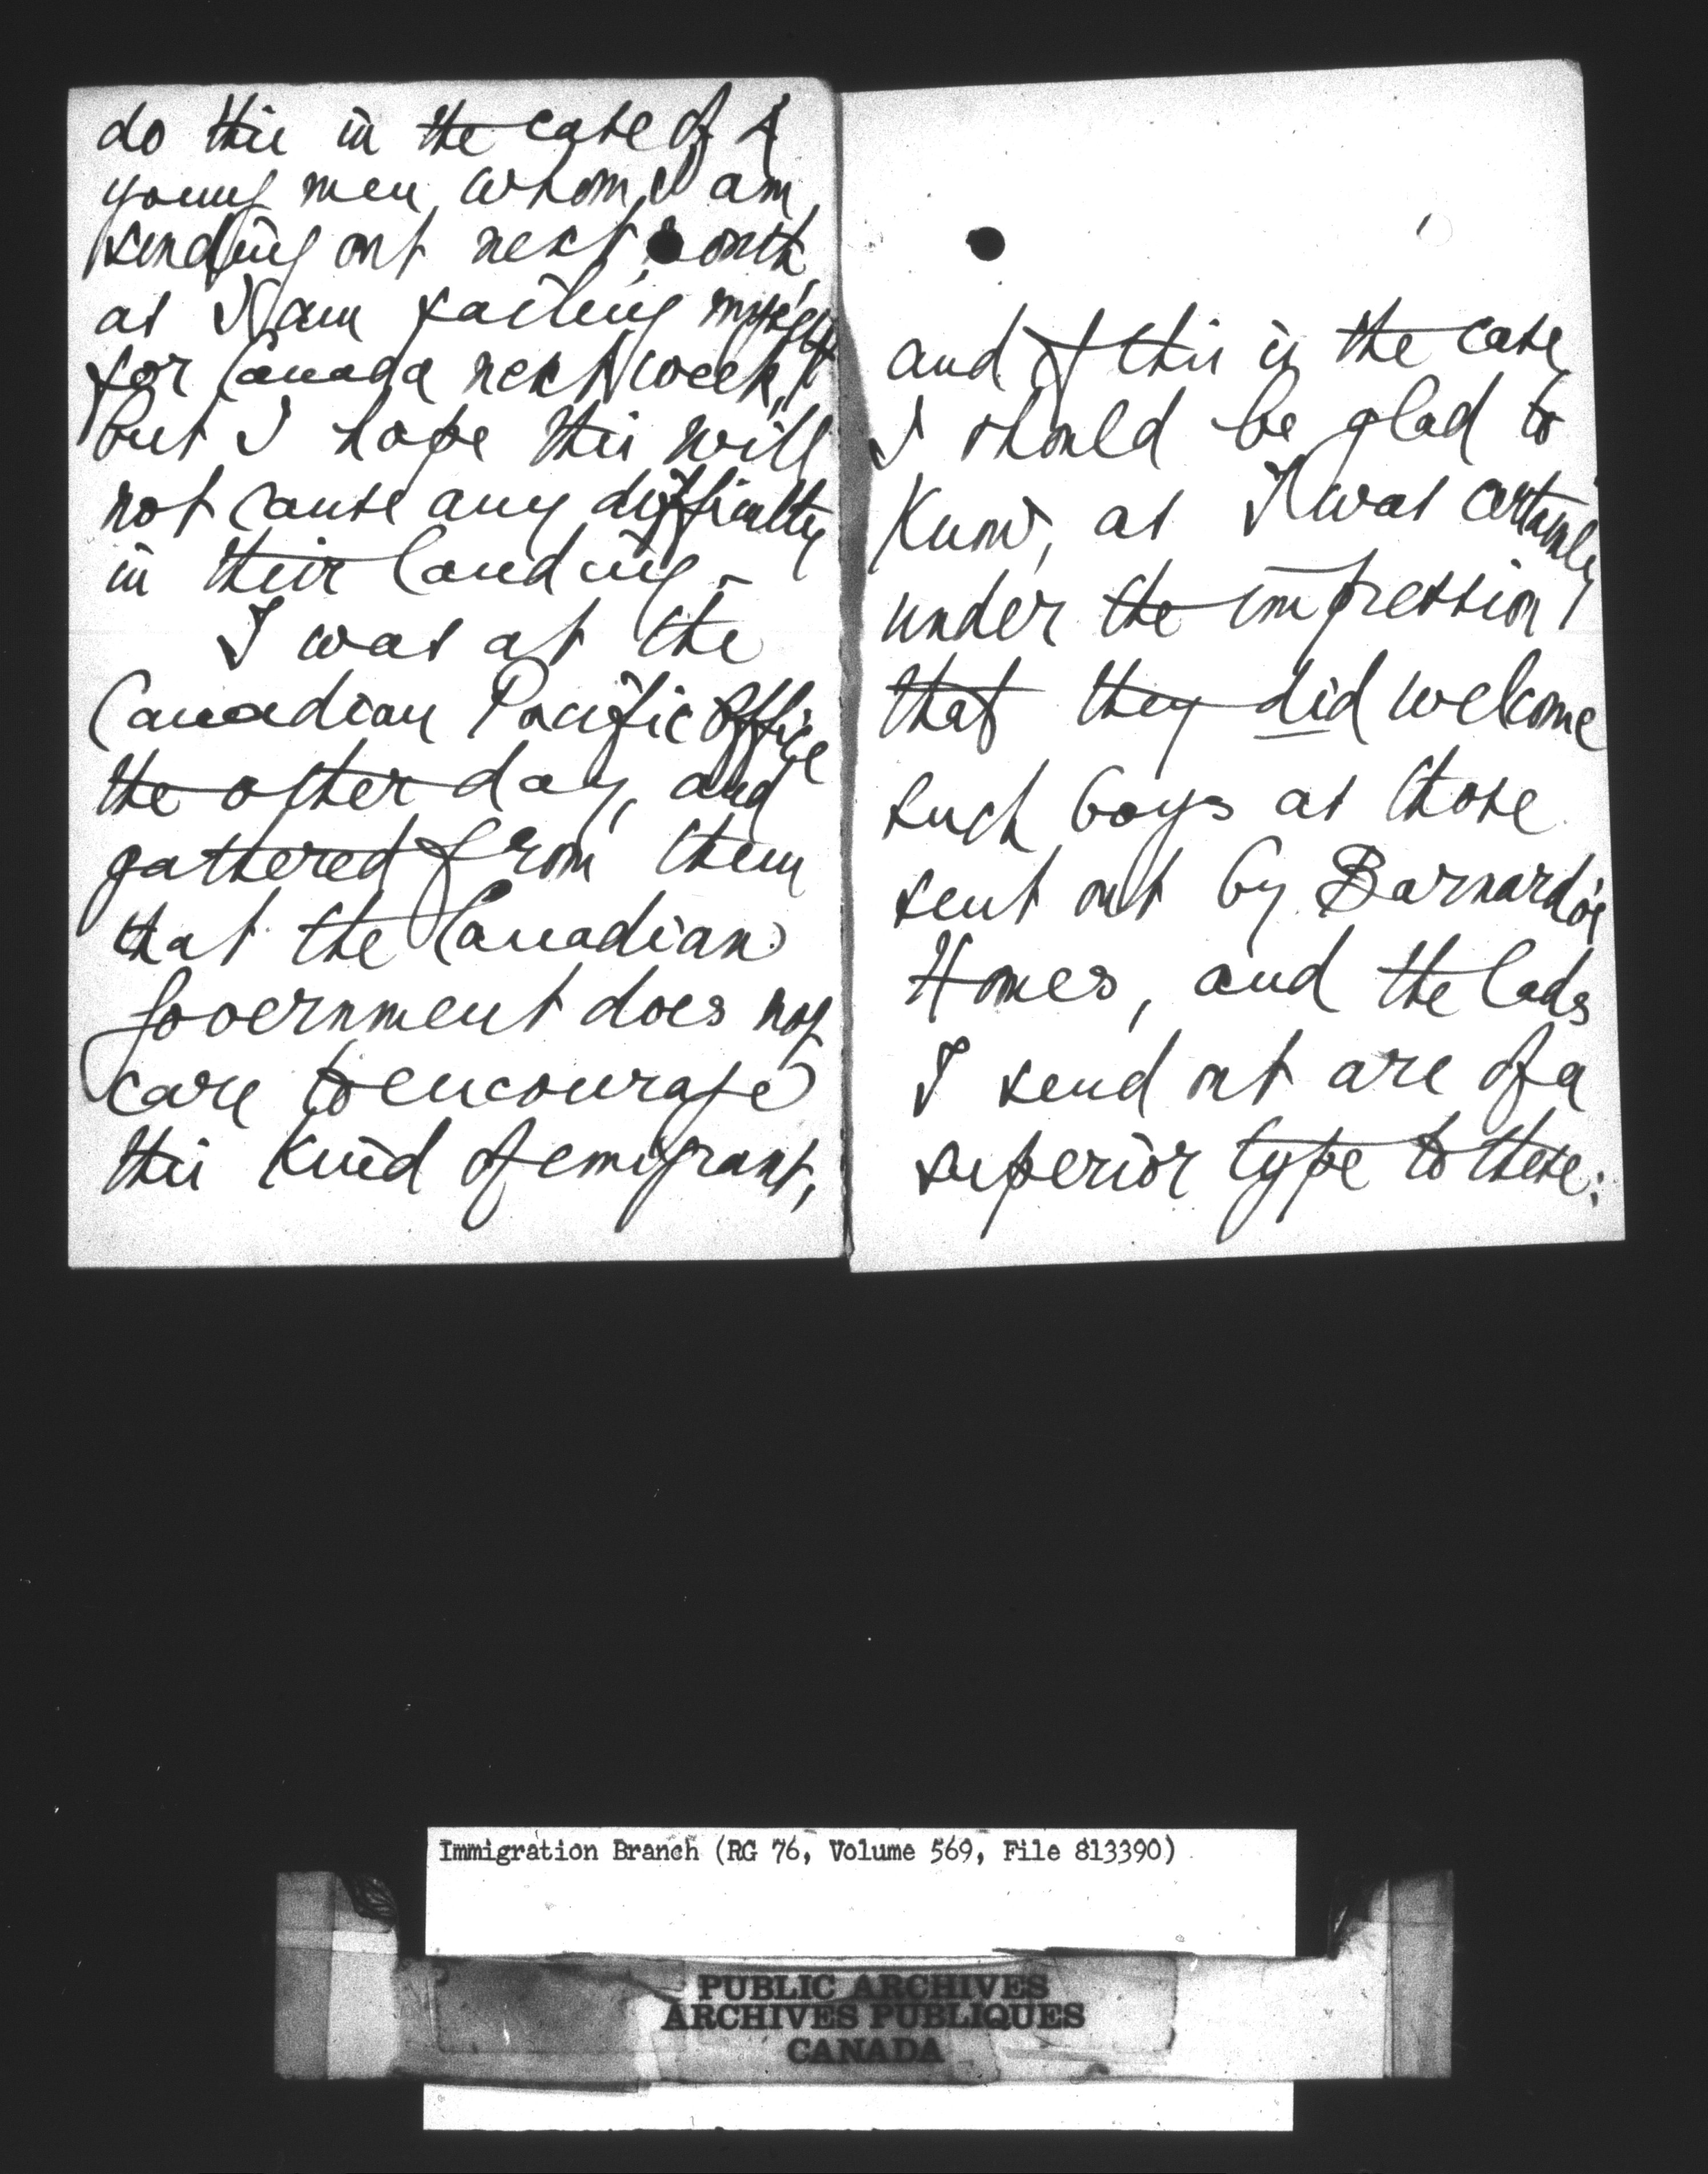 do this in the case of 4
young men whom I am
sending out next month
as I am sailing myself
for Canada next week,
but I hope this will
not cause any difficulty
in their landing.
I was at the
Canadian Pacific Office
the other day, and
gathered from them
that the Canadian
Government does not
care to encourage
this kind of emigrant,
and if this is the case
I should be glad to
know, as I was certainly
under the impression
that they did welcome
such boys as those
sent out by Barnardo's
Homes, and the lads
I send out are of a
superior type to these:
Immigration Branch (RG 76, Volume 569, File 813390)
PUBLIC ARCHIVES
ARCHIVES PUBLIQUES
CANADA